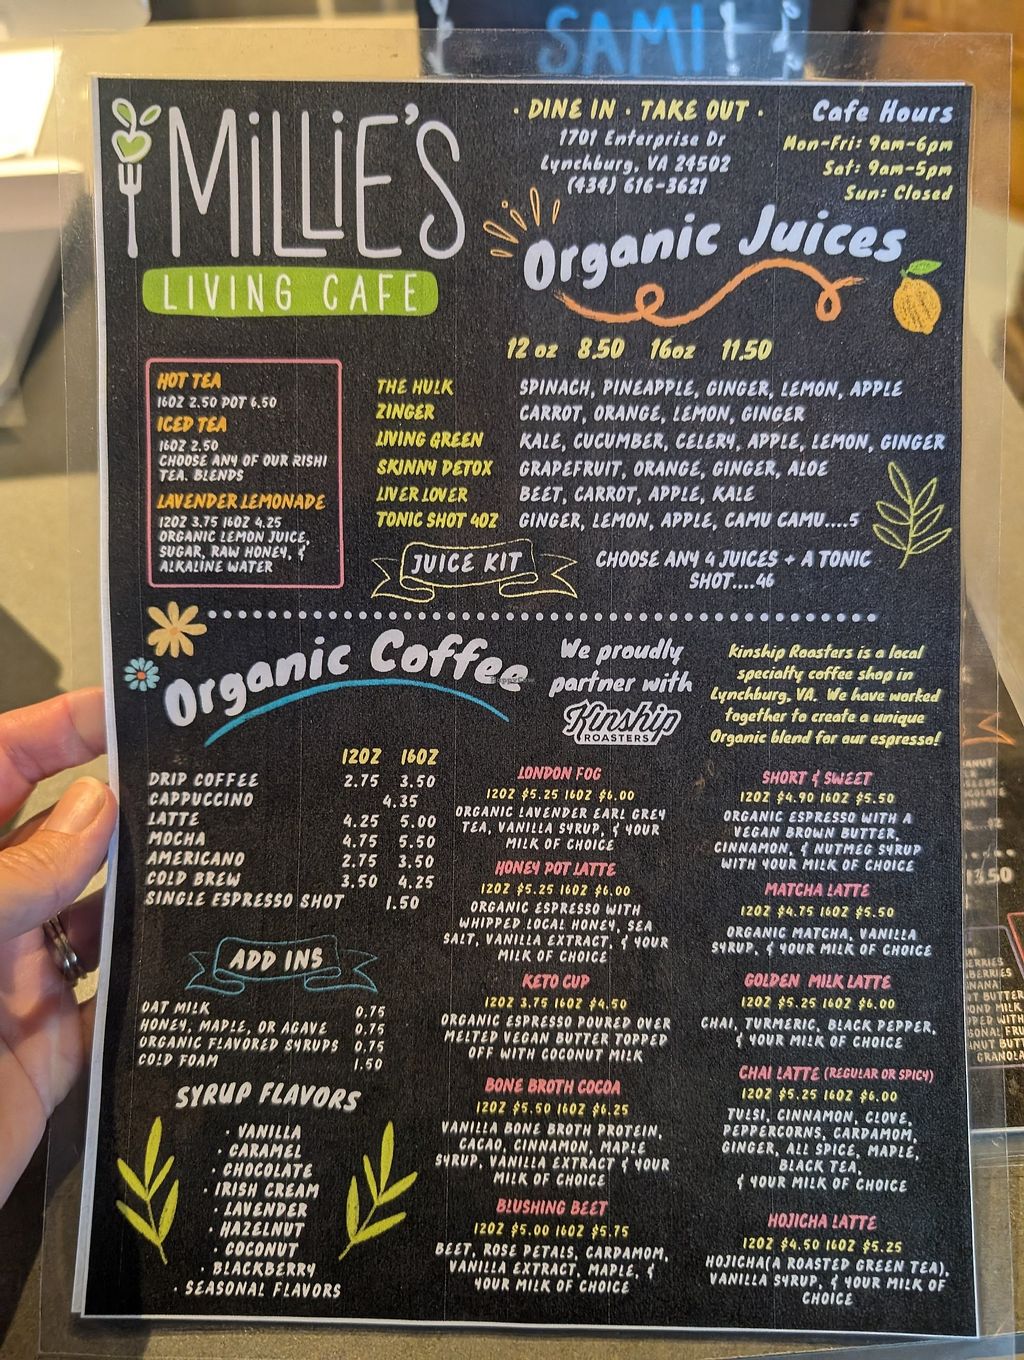 SAMI
MILLIE'S
LIVING CAFE
· DINE IN · TAKE OUT ·
1701 Enterprise Dr
Lynchburg, VA 24502
(434) 616-3621
Cafe Hours
Mon-Fri: 9am-6pm
Sat: 9am-5pm
Sun: Closed
Organic Juices
12 oz 8.50 16oz 11.50
THE HULK SPINACH, PINEAPPLE, GINGER, LEMON, APPLE
ZINGER CARROT, ORANGE, LEMON, GINGER
LIVING GREEN KALE, CUCUMBER, CELERY, APPLE, LEMON, GINGER
SKINNY DETOX GRAPEFRUIT, ORANGE, GINGER, ALOE
LIVER LOVER BEET, CARROT, APPLE, KALE
TONIC SHOT 4OZ GINGER, LEMON, APPLE, CAMU CAMU....5
JUICE KIT
CHOOSE ANY 4 JUICES + A TONIC
SHOT....46
HOT TEA
16OZ 2.50 POT 6.50
ICED TEA
16OZ 2.50
CHOOSE ANY OF OUR RISHI
TEA. BLENDS
LAVENDER LEMONADE
12OZ 3.75 16OZ 4.25
ORGANIC LEMON JUICE,
SUGAR, RAW HONEY, &
ALKALINE WATER
Organic Coffee
We proudly
partner with
Kinship
ROASTERS
Kinship Roasters is a local
specialty coffee shop in
Lynchburg, VA. We have worked
together to create a unique
Organic blend for our espresso!
12OZ 16OZ
DRIP COFFEE 2.75 3.50
CAPPUCCINO 4.35
LATTE 4.25 5.00
MOCHA 4.75 5.50
AMERICANO 2.75 3.50
COLD BREW 3.50 4.25
SINGLE ESPRESSO SHOT 1.50
ADD INS
OAT MILK 0.75
HONEY, MAPLE, OR AGAVE 0.75
ORGANIC FLAVORED SYRUPS 0.75
COLD FOAM 1.50
SYRUP FLAVORS
· VANILLA
· CARAMEL
· CHOCOLATE
· IRISH CREAM
· LAVENDER
· HAZELNUT
· COCONUT
· BLACKBERRY
· SEASONAL FLAVORS
LONDON FOG
12OZ $5.25 16OZ $6.00
ORGANIC LAVENDER EARL GREY
TEA, VANILLA SYRUP, & YOUR
MILK OF CHOICE
HONEY POT LATTE
12OZ $5.25 16OZ $6.00
ORGANIC ESPRESSO WITH
WHIPPED LOCAL HONEY, SEA
SALT, VANILLA EXTRACT, & YOUR
MILK OF CHOICE
KETO CUP
12OZ 3.75 16OZ $4.50
ORGANIC ESPRESSO POURED OVER
MELTED VEGAN BUTTER TOPPED
OFF WITH COCONUT MILK
BONE BROTH COCOA
12OZ $5.50 16OZ $6.25
VANILLA BONE BROTH PROTEIN,
CACAO, CINNAMON, MAPLE
SYRUP, VANILLA EXTRACT & YOUR
MILK OF CHOICE
BLUSHING BEET
12OZ $5.00 16OZ $5.75
BEET, ROSE PETALS, CARDAMOM,
VANILLA EXTRACT, MAPLE, &
YOUR MILK OF CHOICE
SHORT & SWEET
12OZ $4.90 16OZ $5.50
ORGANIC ESPRESSO WITH A
VEGAN BROWN BUTTER,
CINNAMON, & NUTMEG SYRUP
WITH YOUR MILK OF CHOICE
MATCHA LATTE
12OZ $4.75 16OZ $5.50
ORGANIC MATCHA, VANILLA
SYRUP, & YOUR MILK OF CHOICE
GOLDEN MILK LATTE
12OZ $5.25 16OZ $6.00
CHAI, TURMERIC, BLACK PEPPER,
& YOUR MILK OF CHOICE
CHAI LATTE (REGULAR OR SPICY)
12OZ $5.25 16OZ $6.00
TULSI, CINNAMON, CLOVE,
PEPPERCORNS, CARDAMOM,
GINGER, ALL SPICE, MAPLE,
BLACK TEA,
& YOUR MILK OF CHOICE
HOJICHA LATTE
12OZ $4.50 16OZ $5.25
HOJICHA(A ROASTED GREEN TEA),
VANILLA SYRUP, & YOUR MILK OF
CHOICE